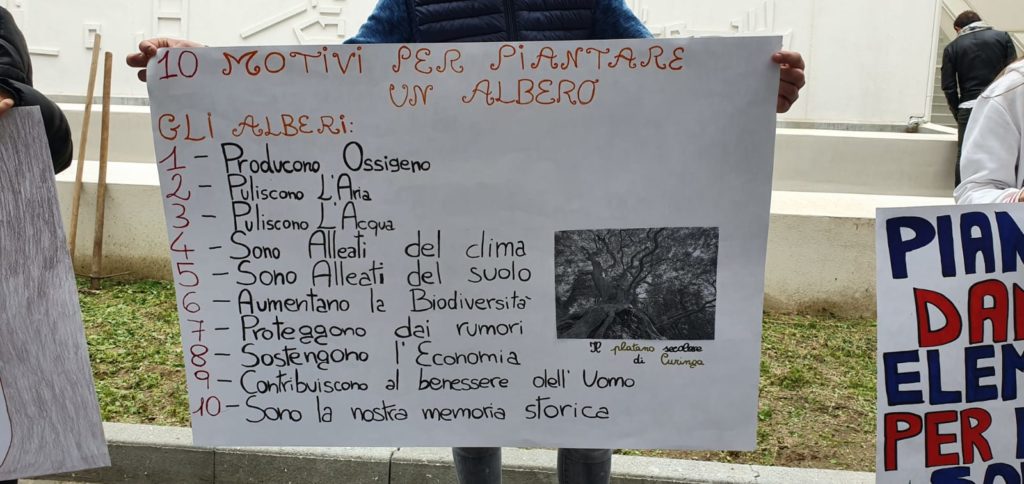 10 MOTIVI PER PIANTARE
UN ALBERO
GLI ALBERI:
1 - Producono Ossigeno
2 - Puliscono L'Aria
3 - Puliscono L'Acqua
4 - Sono Alleati del clima
5 - Sono Alleati del suolo
6 - Aumentano la Biodiversità
7 - Proteggono dai rumori
8 - Sostengono l'Economia
9 - Contribuiscono al benessere dell'Uomo
10 - Sono la nostra memoria storica
Il platano secolare
di Curinga
PIAN
DAN
ELEM
PER
SO